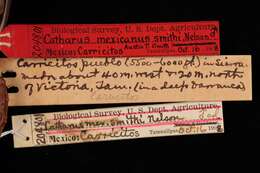 204801
Biological Survey, U. S. Dept. Agriculture
Catharus mexicanus smithi, Nelson ♂
Austin P. Smith
Mexico: Carricitos Oct. 16
Carricitos pueblo (5500-6000 ft) in Sierra
madre about 40 m. west & 20 m. north
of Victoria, Tam. (in a deep barranca)
204801
Biological Survey, U. S. Dept. Agriculture
Catharus mex. smithi Nelson
Mexico: Carricitos
Tamaulipas Oct. 16